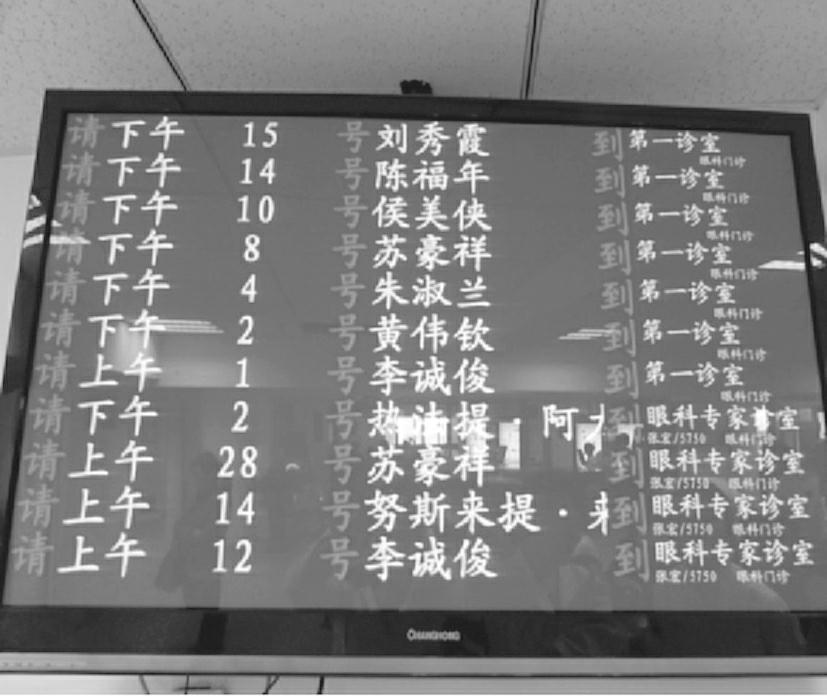 请 下午 15 号 刘秀霞 到 第一诊室
眼科门诊
请 下午 14 号 陈福年 到 第一诊室
眼科门诊
请 下午 10 号 侯美侠 到 第一诊室
眼科门诊
请 下午 8 号 苏豪祥 到 第一诊室
眼科门诊
请 下午 4 号 朱淑兰 到 第一诊室
眼科门诊
请 下午 2 号 黄伟钦 到 第一诊室
眼科门诊
请 上午 1 号 李诚俊 到 第一诊室
眼科门诊
请 下午 2 号 热 提·阿 到 眼科专家诊室
张宏/5750 眼科门诊
请 上午 28 号 苏豪祥 到 眼科专家诊室
张宏/5750 眼科门诊
请 上午 14 号 努斯来提·来 到 眼科专家诊室
张宏/5750 眼科门诊
请 上午 12 号 李诚俊 到 眼科专家诊室
张宏/5750 眼科门诊
CHANGHONG